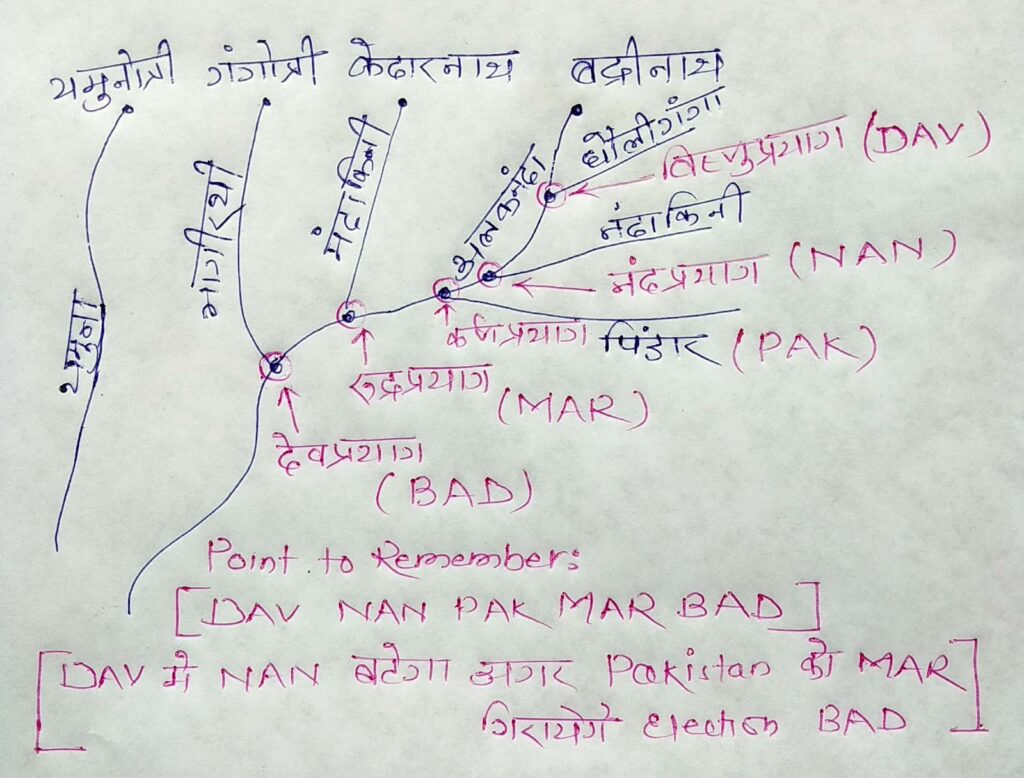 यमुनोत्री गंगोत्री केदारनाथ बद्रीनाथ
धौलीगंगा
विष्णुप्रयाग (DAV)
अलकनंदा
मंदाकिनी
भागीरथी
नंदाकिनी
नंदप्रयाग (NAN)
यमुना
कर्णप्रयाग
पिंडार (PAK)
रुद्रप्रयाग
(MAR)
देवप्रयाग
(BAD)
Point to Remember:
[DAV NAN PAK MAR BAD]
[DAV में NAN बटेगा अगर Pakistan को MAR
गिरायेगे election BAD]